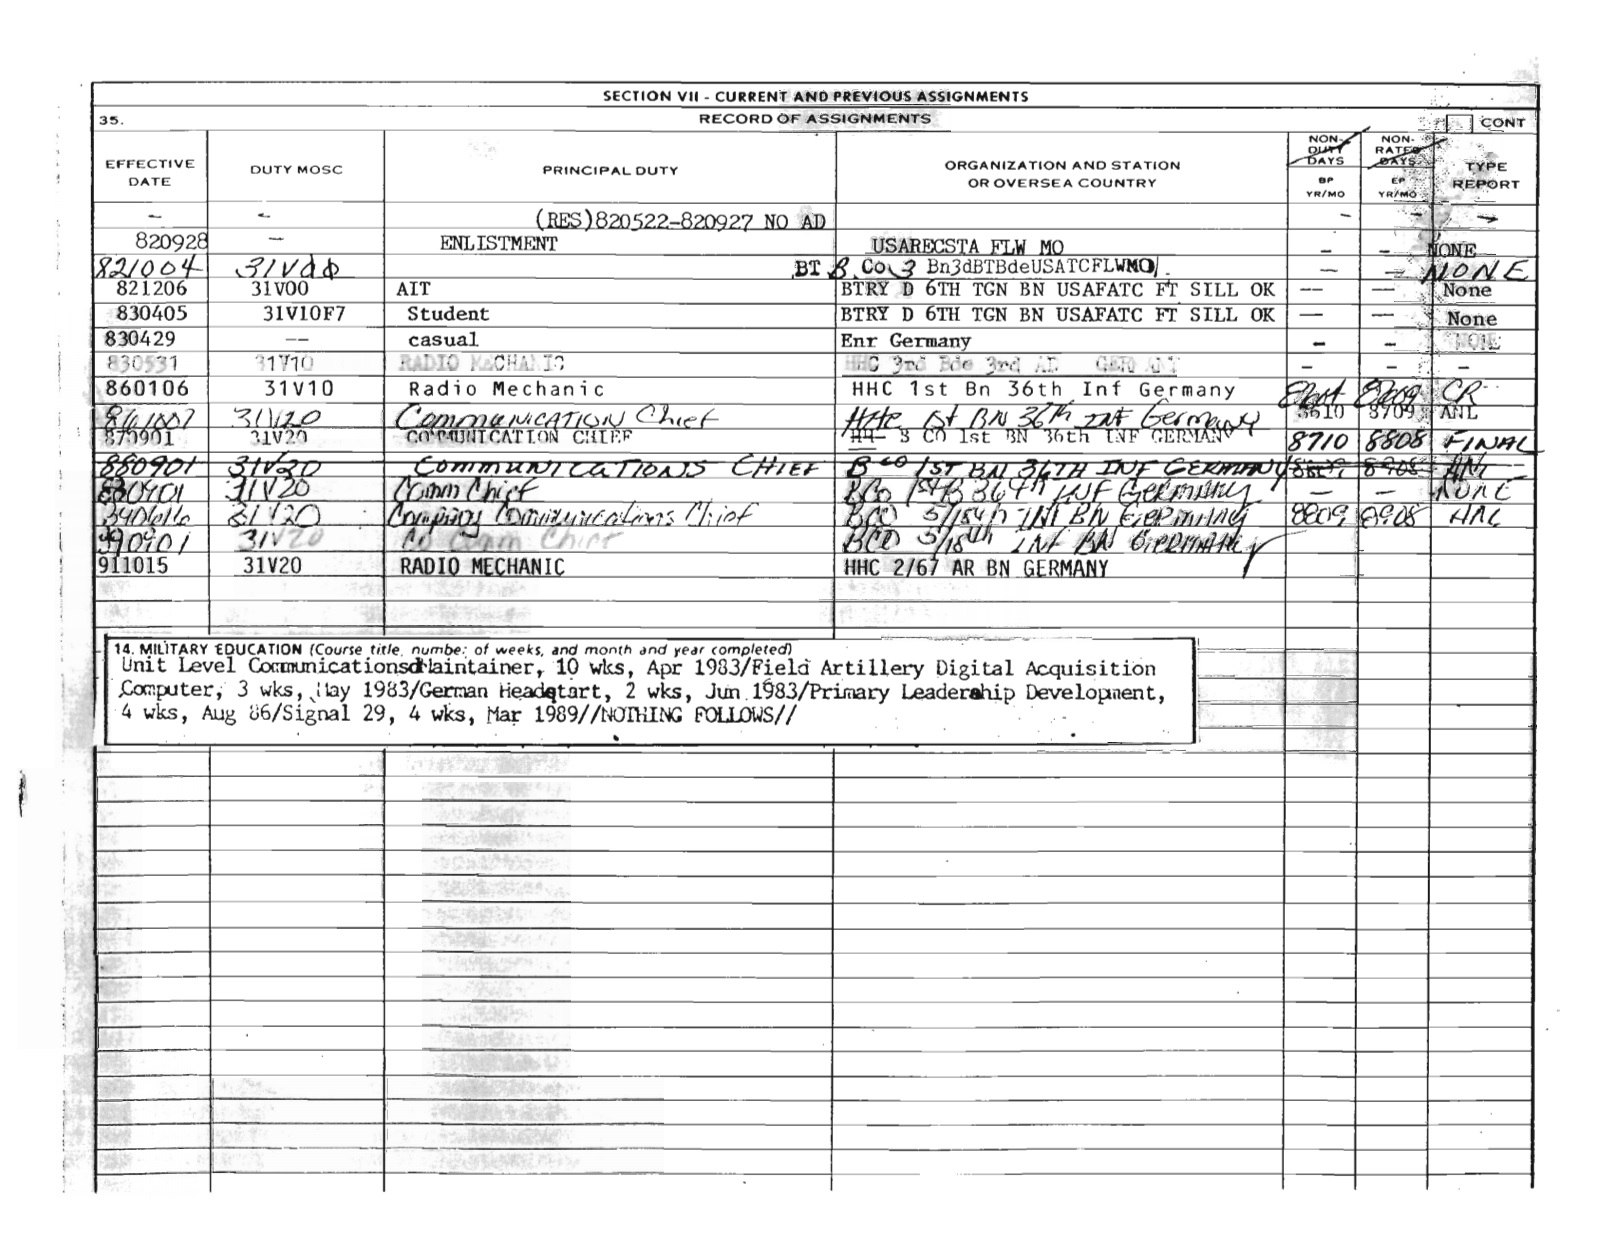 SECTION VII - CURRENT AND PREVIOUS ASSIGNMENTS
35. RECORD OF ASSIGNMENTS CONT
EFFECTIVE DATE DUTY MOSC PRINCIPAL DUTY ORGANIZATION AND STATION OR OVERSEA COUNTRY NON-DUTY DAYS BP YR/MO NON-RATED DAYS EP YR/MO TYPE REPORT
— — (RES)820522-820927 NO AD — — —
820928 — ENLISTMENT USARECSTA FLW MO — — NONE
821004 31V00 BT B Co 3 Bn3dBTBdeUSATCFLWMO — — NONE
821206 31V00 AIT BTRY D 6TH TGN BN USAFATC FT SILL OK — — None
830405 31V10F7 Student BTRY D 6TH TGN BN USAFATC FT SILL OK — — None
830429 -- casual Enr Germany — — NONE
830531 31V10 RADIO MECHANIC HHC 3rd Bde 3rd AD — — —
860106 31V10 Radio Mechanic HHC 1st Bn 36th Inf Germany CR
31V20 Communication Chief HHC 1st BN 36th INF Germany 8610 8709 ANL
870901 31V20 COMMUNICATION CHIEF CO 1st BN 36th INF GERMANY 8710 8808 FINAL
880901 31V20 COMMUNICATIONS CHIEF B CO 1ST BN 36TH INF GERMANY
31V20 Comm Chief BCo INF Germany — — NONE
31V20 Company Communications Chief BCO INF BN GERMANY 8809 8908
31V20 Co Comm Chief BCO 5/18th INF BN GERMANY
911015 31V20 RADIO MECHANIC HHC 2/67 AR BN GERMANY
14. MILITARY EDUCATION (Course title, number of weeks, and month and year completed)
Unit Level Communications Maintainer, 10 wks, Apr 1983/Field Artillery Digital Acquisition
Computer, 3 wks, May 1983/German Headstart, 2 wks, Jun 1983/Primary Leadership Development,
4 wks, Aug 86/Signal 29, 4 wks, Mar 1989//NOTHING FOLLOWS//